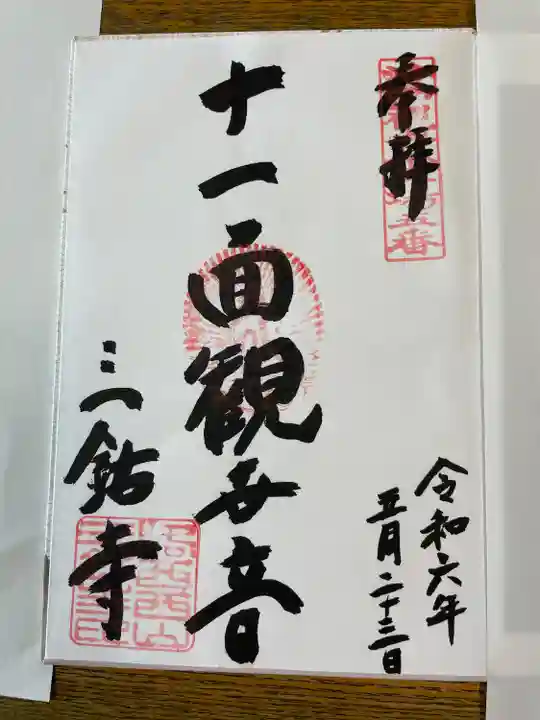 奉拝
十一面観世音
三鈷寺
令和六年
五月二十三日